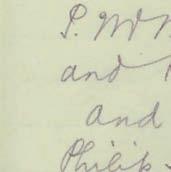 P. W
and
and
Philip